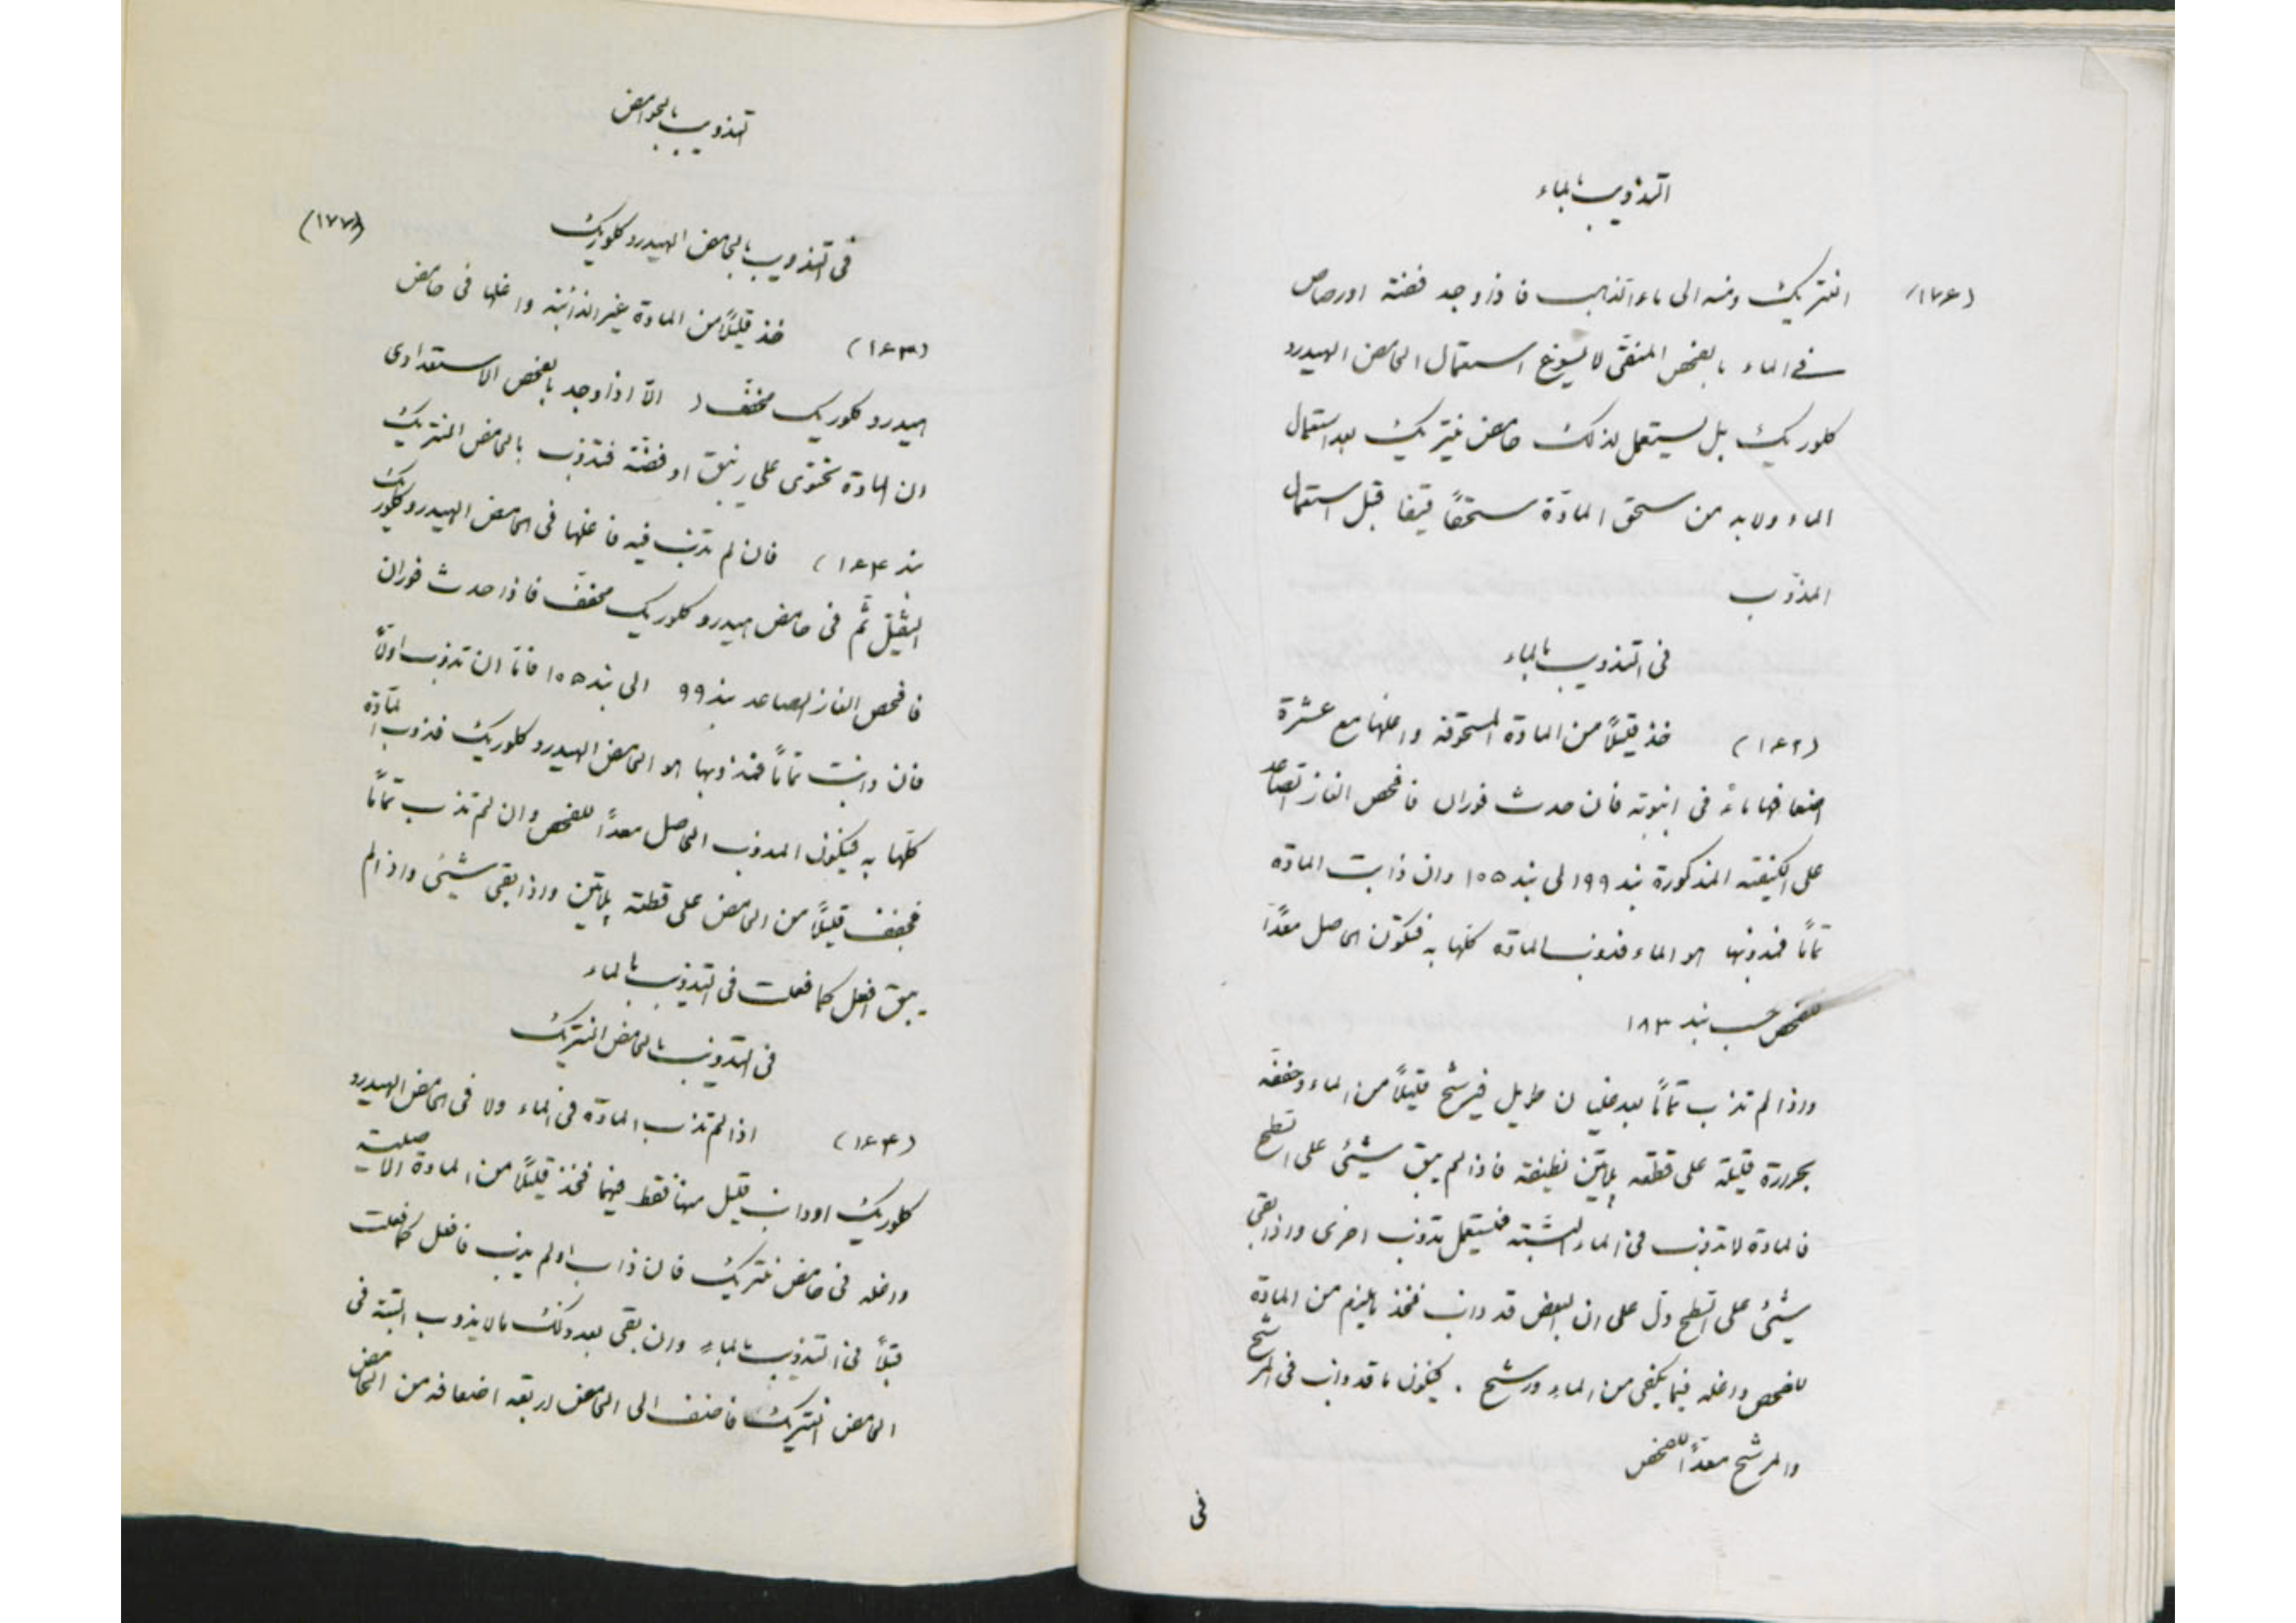 التذويب بالماء
(١٧٦)
النتريك ومنه الى ماء الذهب فاذا وجد فضة او رصاص
في الماء بالفحص المنقى لا يسوغ استعمال الحامض الهيدرو
كلوريك بل يستعمل لذلك حامض نيتريك بعد استعمال
الماء ولا بد من سحق المادّة سحقًا قبل استعمال
المذوّب
فى التذويب بالماء
(١٦٢) خذ قليلًا من المادة المسحوقة واغلها مع عشرة
اضعافها ماءً فى انبوبة فان حدث فوران فافحص الغاز الصاعد
على الكيفية المذكورة بند ٩٩ الى بند ١٠٥ وان ذابت المادة
تمامًا فمذوبها هو الماء فذوب المادة كلها به فيكون الحاصل معدًا
للفحص حسب بند ١٨٣
واذا لم تذب تمامًا بعد غليان طويل فيرشح قليلًا من الماء وجففه
بحرارة قليلة على قطعة پلاتين نظيفة فاذا لم يبق شيئ على السطح
فالمادة لا تذوب فى الماء البتة فيستعمل مذوب اخرى واذا بقى
شيئ على السطح دل على ان البعض قد ذاب فخذ ما يلزم من المادة
للفحص واغله فيما يكفى من الماء ورشح . فيكون ما قد ذاب فى المرشح
والمرشح معدًا للفحص
فى
تذويب بالحوامض
(١٧٧)
فى التذويب بالحامض الهيدروكلوريك
(١٦٣) خذ قليلًا من المادة غير الذائبة واغلها فى حامض
هيدروكلوريك مخفّف الّا اذا وجد بالفحص الاستعدادى
ان المادة تحتوى على زيبق او فضّة فتذوب بالحامض النتريك
بند ١٦٤) فان لم تذب فيه فاغلها فى الحامض الهيدروكلوريك
الثقيل ثم فى حامض هيدروكلوريك مخفف فاذا حدث فوران
فافحص الغاز الصاعد بند ٩٩ الى بند ١٠٥ فامّا ان تذوب اولًا
فان ذابت تمامًا فمذوبها هو الحامض الهيدروكلوريك فذوب المادّة
كلها به فيكون المذوب الحاصل معدًا للفحص وان لم تذب تمامًا
فجفف قليلًا من الحامض على قطعة پلاتين واذا بقى شيئ واذا لم
يبق افعل كما فعلت فى التذويب بالماء
فى التذويب بالحامض النتريك
(١٦٤) اذا لم تذب المادة فى الماء ولا فى الحامض الهيدرو
كلوريك او ذاب قليل منها فقط فيهما فخذ قليلًا من المادة الاصلية
واغله فى حامض نتريك فان ذاب او لم يذب فافعل كما فعلت
قبلًا فى التذويب بالماء وان بقى بعد ذلك ما لا يذوب البتة فى
الحامض النتريك فاضف الى الحامض اربعة اضعافه من الحامض